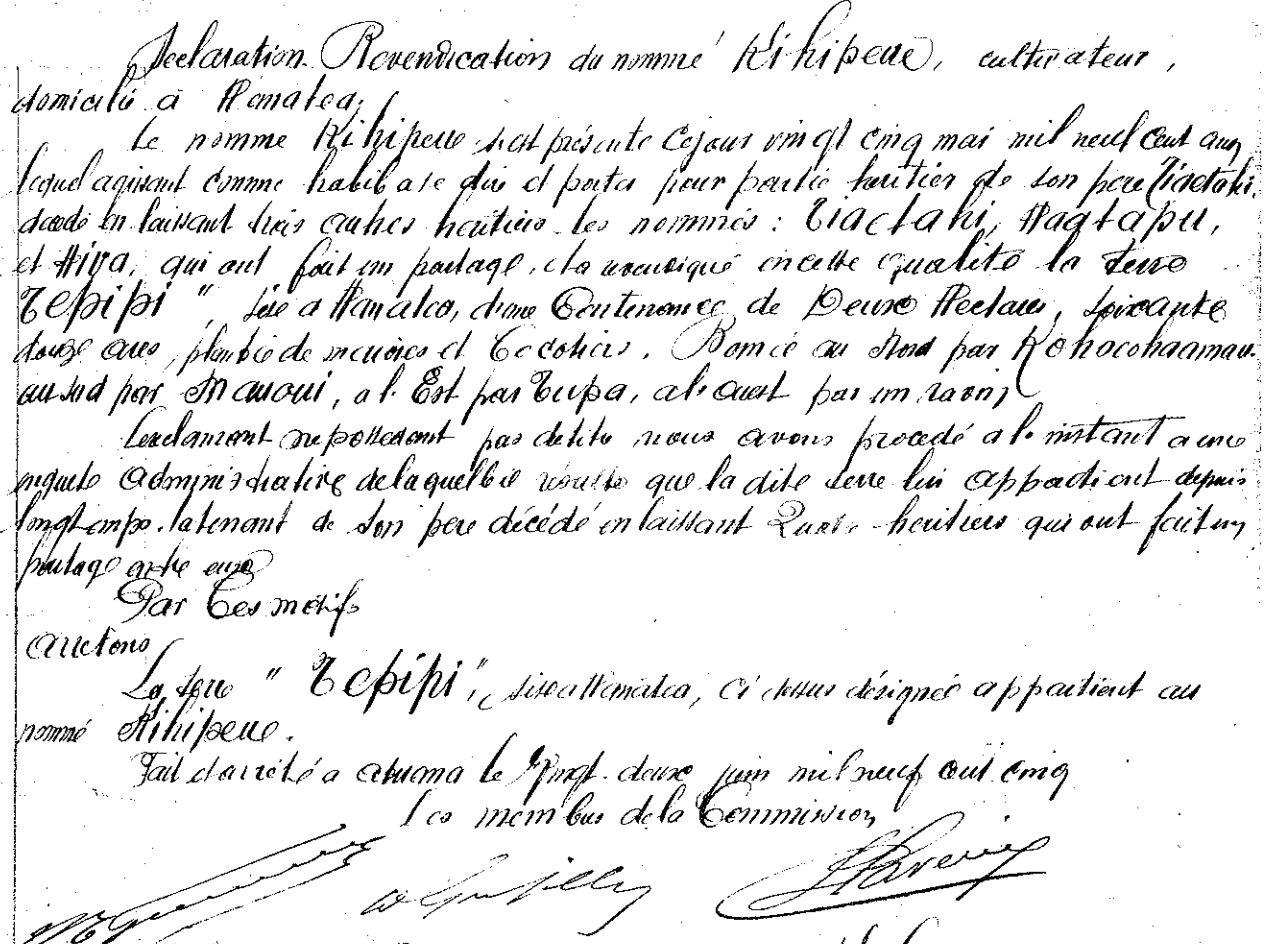 Declaration Revendication du nommé Kihipeue, cultivateur,
domicilié à Hanatea,
Le nomme Kihipeue s'est présenté ce jour vingt cinq mai mil neuf cent cinq
lequel agissant comme habile a se dire et porter pour partie heritier de son pere Tiaetahi,
decedé en laissant trois autres heritiers les nommés : Tiaetahi, Haatapu,
et Hiva, qui ont fait un partage, et a revendiqué en cette qualité la terre
Tepipi ", sise a Hanatea, d'une Contenance de Deux Hectares, soixante
douze ares, plantée de maiores et Cocotiers. Bornée au Nord par Kohocohaamau
au sud par Manoui, a l'Est par Tupa, a l'ouest par un ravin,
Le reclamant ne possedant pas de titre nous avons procedé a l'instant a une
enquete administrative de laquelle il resulte que la dite terre lui appartient depuis
longtemps. la tenant de son pere décédé en laissant Quatre heritiers qui ont fait un
partage entre eux
Par Ces motifs
arretons
La terre " Tepipi ", sise a Hanatea, ci dessus désignée appartient au
nommé Kihipeue.
Fait et arrêté a atuona le Vingt deux juin mil neuf cent cinq
Les membres de la Commission